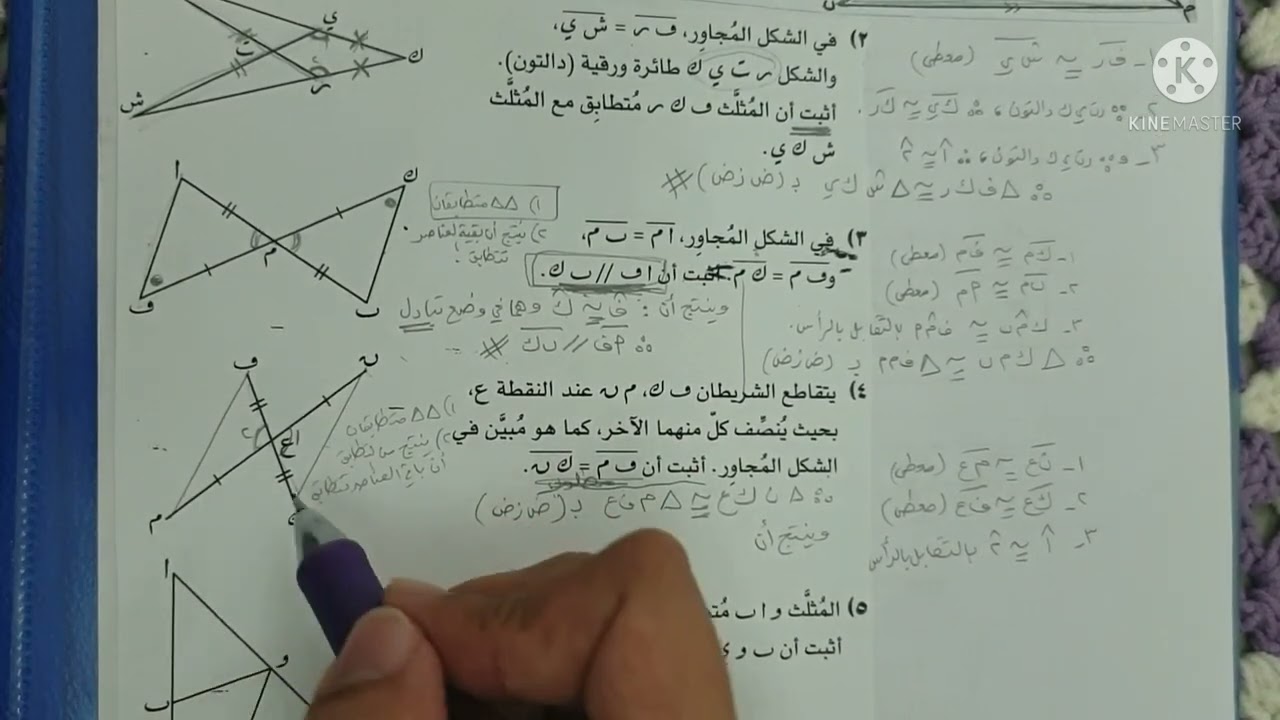 ٢) في الشكل المُجاوِر، ف ر = ش ي،
والشكل ر ت ي ك طائرة ورقية (دالتون).
أثبت أن المُثلَّث ف ك ر مُتطابِق مع المُثلَّث
ش ك ي.
١- ف ر ≅ ش ي (معطى)
٢- ∵ ر ت ي ك دالتون، ∴ ك ي ≅ ك ر
٣- و ∵ ر ت ي ك دالتون، ∴ ١ ≅ ٢
∴ △ ف ك ر ≅ △ ش ك ي بـ (ض ز ض) #
ي
ت
ك
ر
ش
KINEMASTER
٣) في الشكل المُجاوِر، ا م = ب م،
وف م = ك م. أثبت أن ا ف // ب ك.
١) △△ متطابقان
٢) ينتج أن بقية العناصر
تتطابق!
١- ك م ≅ ف م (معطى)
٢- ب م ≅ م ا (معطى)
٣- ك م ب ≅ ف م ا بالتقابل بالرأس.
∴ △ ك م ب ≅ △ ف م ا بـ (ض ز ض)
وينتج أن: ف ≅ ك وهما في وضع تبادل
∴ ا ف // ب ك #
ا
ك
م
ف
ب
٤) يتقاطع الشريطان ف ك، م ن عند النقطة ع،
بحيث يُنصِّف كلّ منهما الآخر، كما هو مُبيَّن في
الشكل المُجاوِر. أثبت أن ف م = ك ن.
مطلوب
١) △△ متطابقان
٢) ينتج من تطابق
أن باقي العناصر تتطابق
١- ن ع ≅ م ع (معطى)
٢- ك ع ≅ ف ع (معطى)
٣- ١ ≅ ٢ بالتقابل بالرأس
∴ △ ن ك ع ≅ △ م ف ع بـ (ض ز ض)
وينتج أن
ف
ن
ع
م
٥) المُثلَّث و ا ب
أثبت أن ب و
ا
و
ب